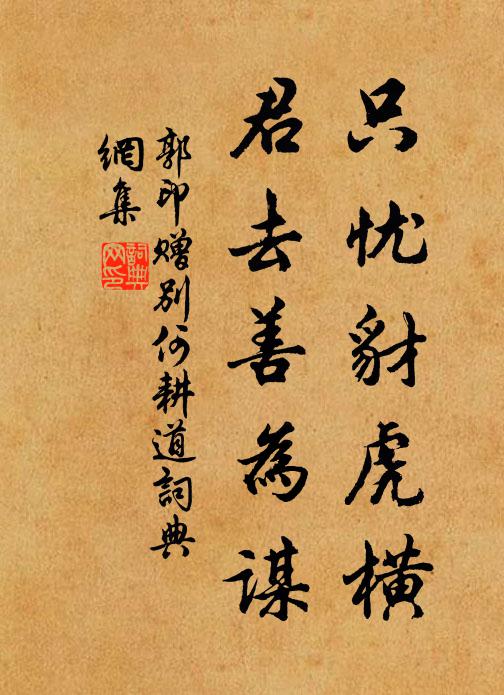 只忧豺虎横
君去善為谋
郭印赠别何耕道詞典
網集
詞典
网印